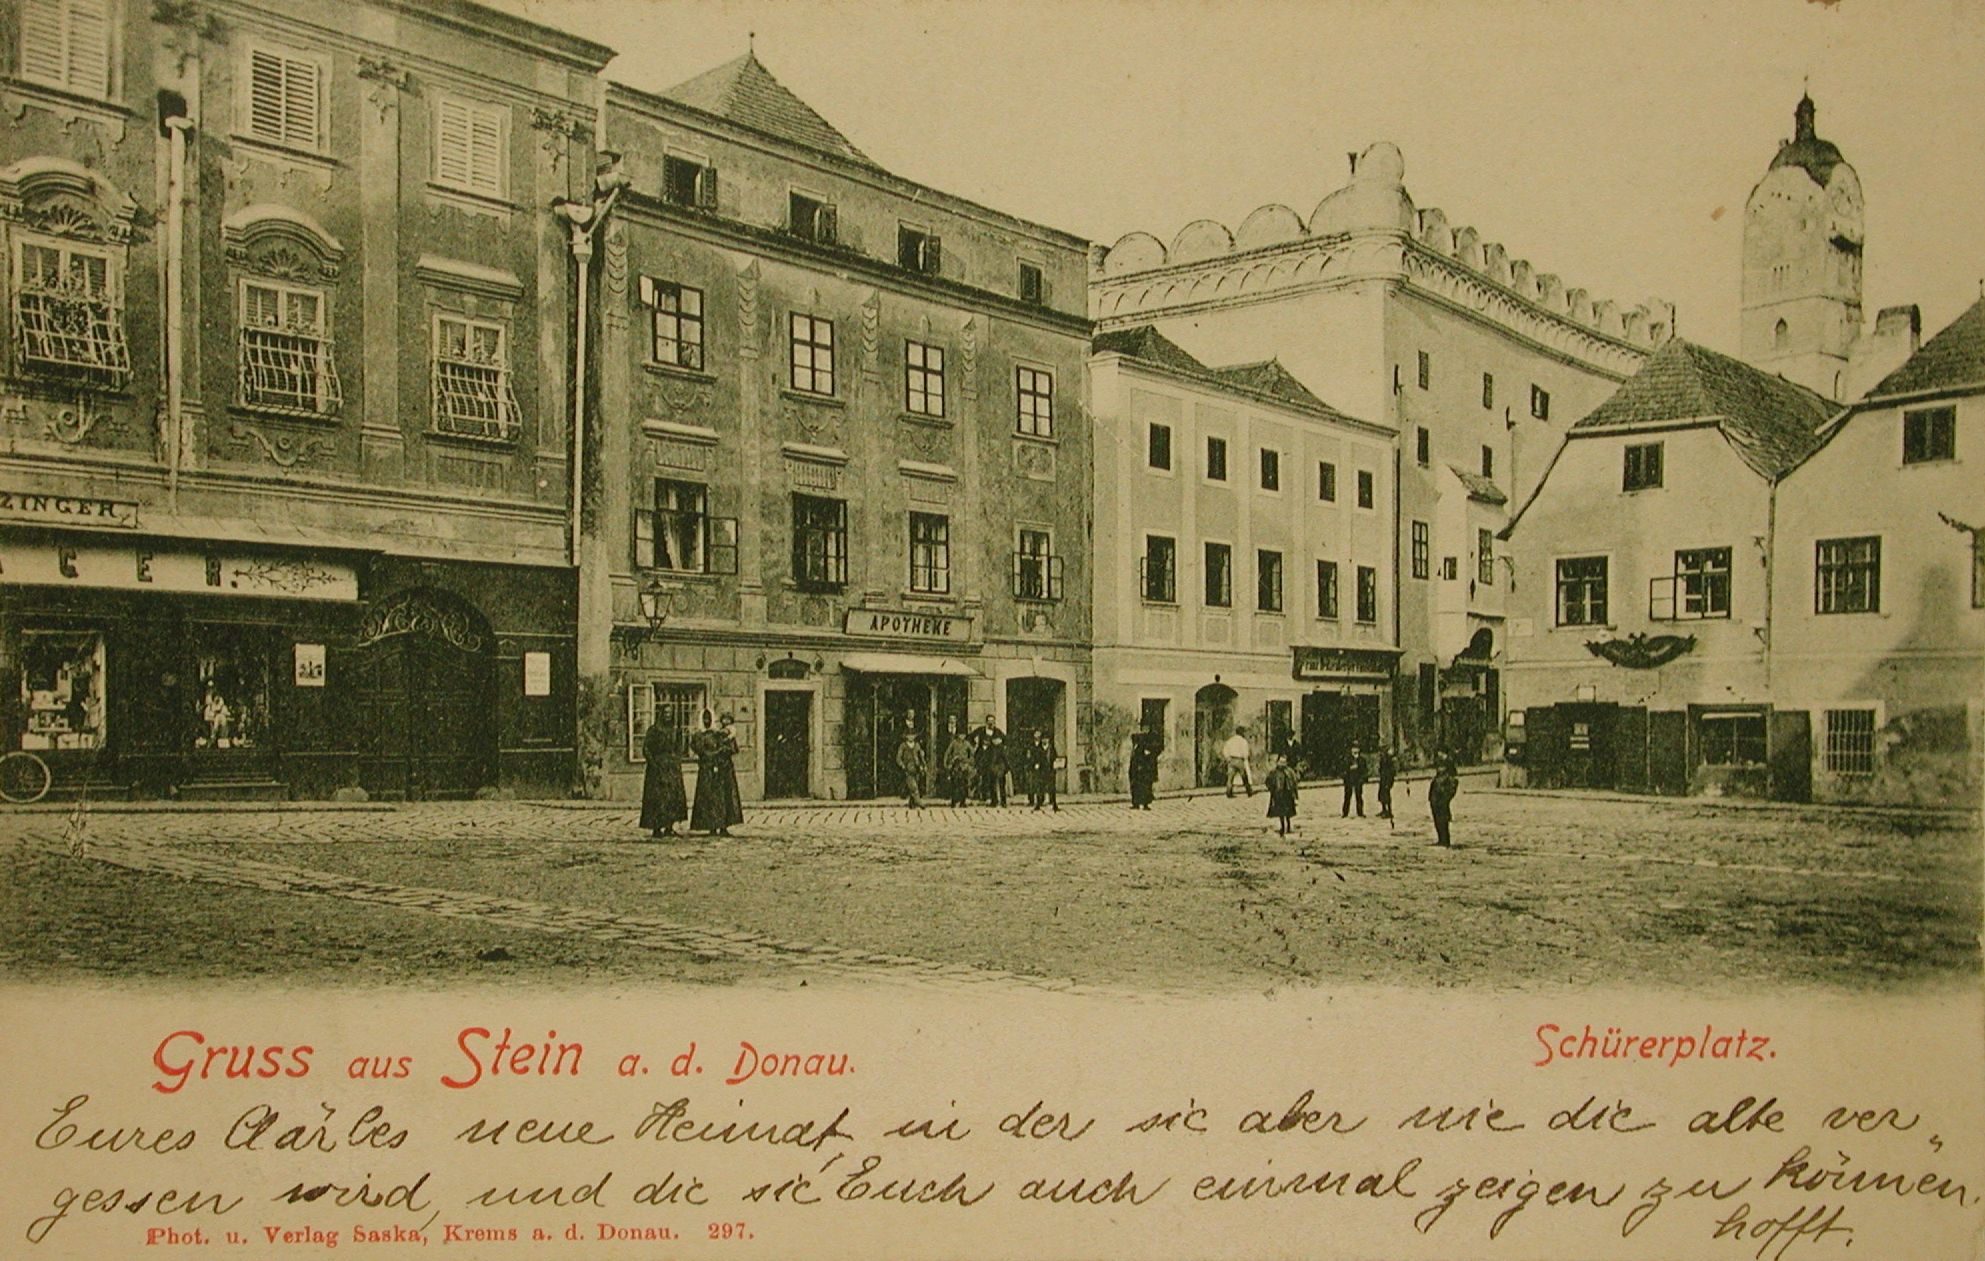 ZINGER
GER.
APOTHEKE
Gruss aus Stein a. d. Donau.
Schürerplatz.
Eures Clärles neue Heimat, in der sie aber nie die alte ver„
gessen wird, und die sie Euch auch einmal zeigen zu können
hofft.
Phot. u. Verlag Saska, Krems a. d. Donau. 297.